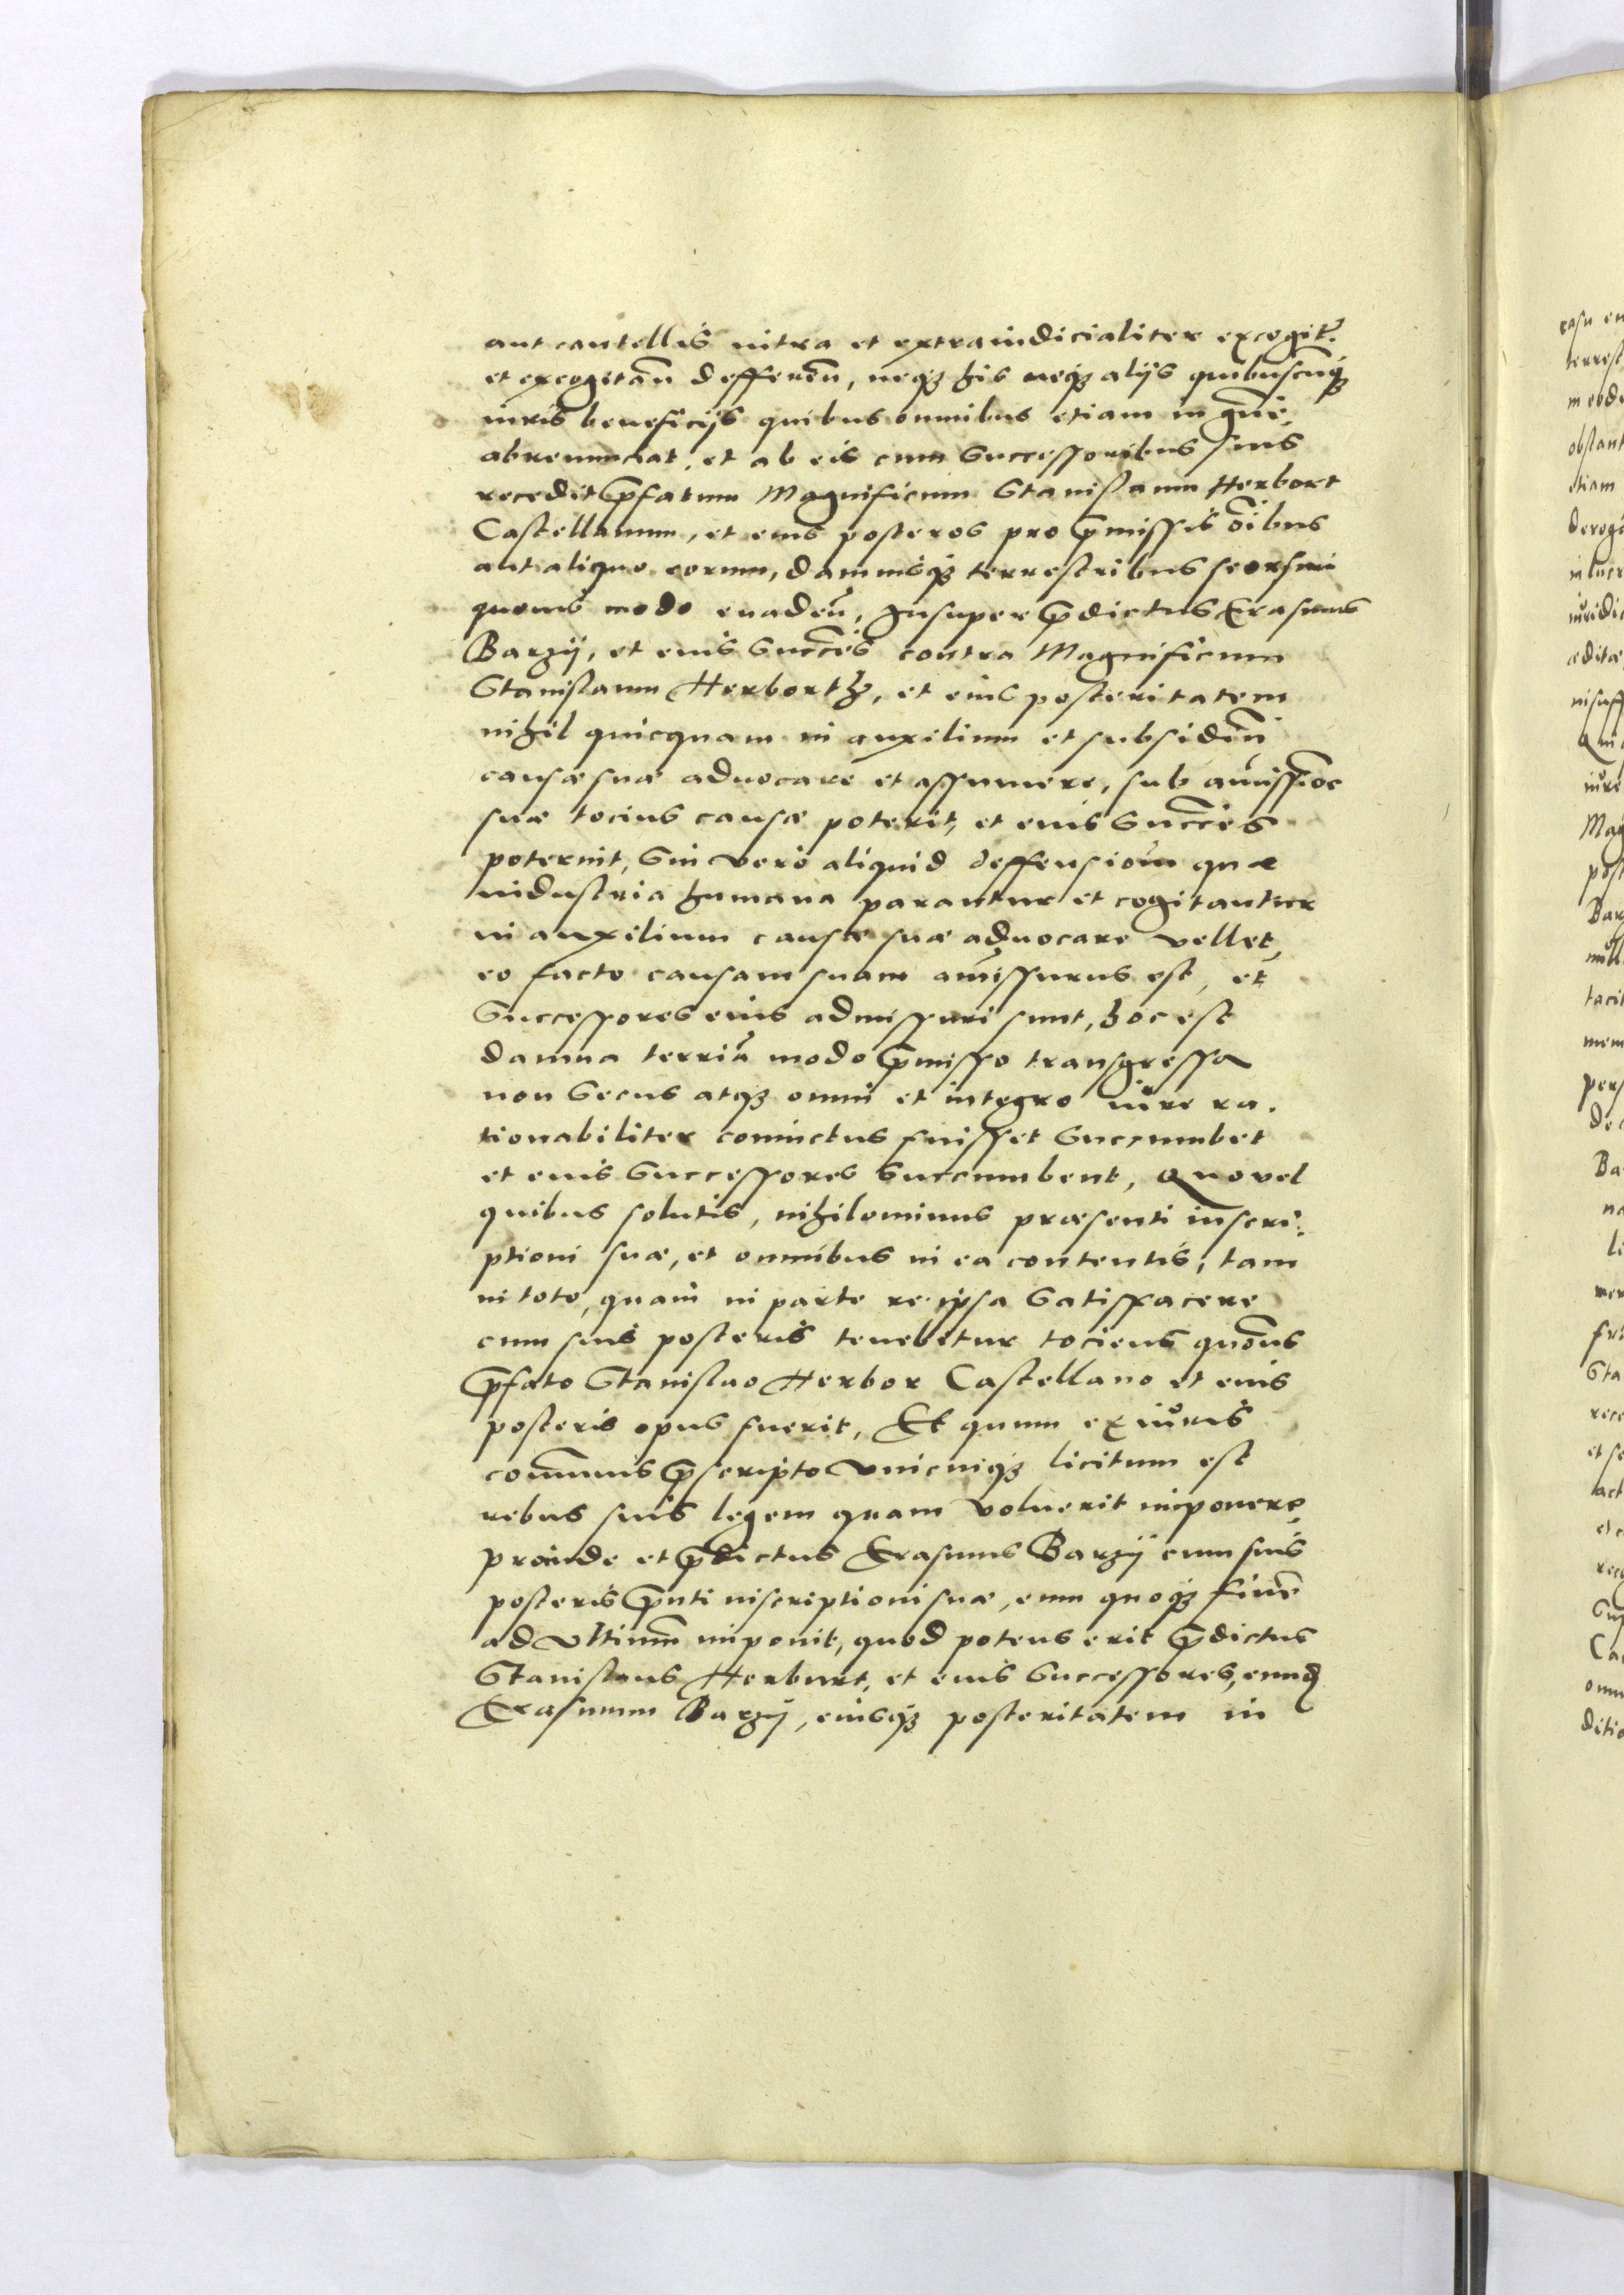 aut cautellis intra et extraiudicialiter excogit.
et excogitan̄ defferen̄, neqȝ his neqȝ alijs quibuscūqȝ
iuris beneficijs quibus omnibus etiam in gn̄e
abrenunciat, et ab eis cum Successoribus suis
recedit p̄fatum Magnificum Stanislaum Herbort
Castellanum, et eius posteros pro p̄missis oībus
aut aliquo eorum, damnisqȝ terrestribus seorsiui
quouis modo euaden̄, Insuper p̄dictus Erasmus
Barzij, et eius Succēs contra Magnificum
Stanislaum Herborth, et eius posteritatem
nihil quicquam in auxilium et subsidiū
causæ suæ aduocare et assumere, sub amissiōe
suæ tocius causæ poterit, et eius Succēs
poterint, Sin vero aliquid deffensionū quæ
industria humana parantur et cogitantur
in auxilium causæ suæ aduocare vellet,
eo facto causam suam amissurus est, et
Successores eius admissuri sunt, hoc est
damna terriā modo p̄misso transgressa
non Secus atqȝ omni et integro iure ra.
tionabiliter conuictus fuisset Succumbet
et eius Successores Succumbent, Quo vel
quibus solutis, nihilominus præsenti inscri.
ptioni suæ, et omnibus in ea contentis, tam
in toto, quam in parte re ipsa Satisfacere
cum suis posteris tenebitur tociens quōns
p̄fato Stanislao Herbor Castellano et eius
posteris opus fuerit, Et quum ex iuris
com̄unis p̄scripto vnicuiqȝ licitum est
rebus suis legem quam voluerit imponere,
proinde et p̄dictus Erasmus Barzij cum suis
posteris p̄nti inscriptioni suæ, eum quoqȝ finē
ad vltimū imponit, quod potens erit p̄dictus
Stanislaus Herburt, et eius Successores, eundē
Erasmum Barzij, eiusqȝ posteritatem in